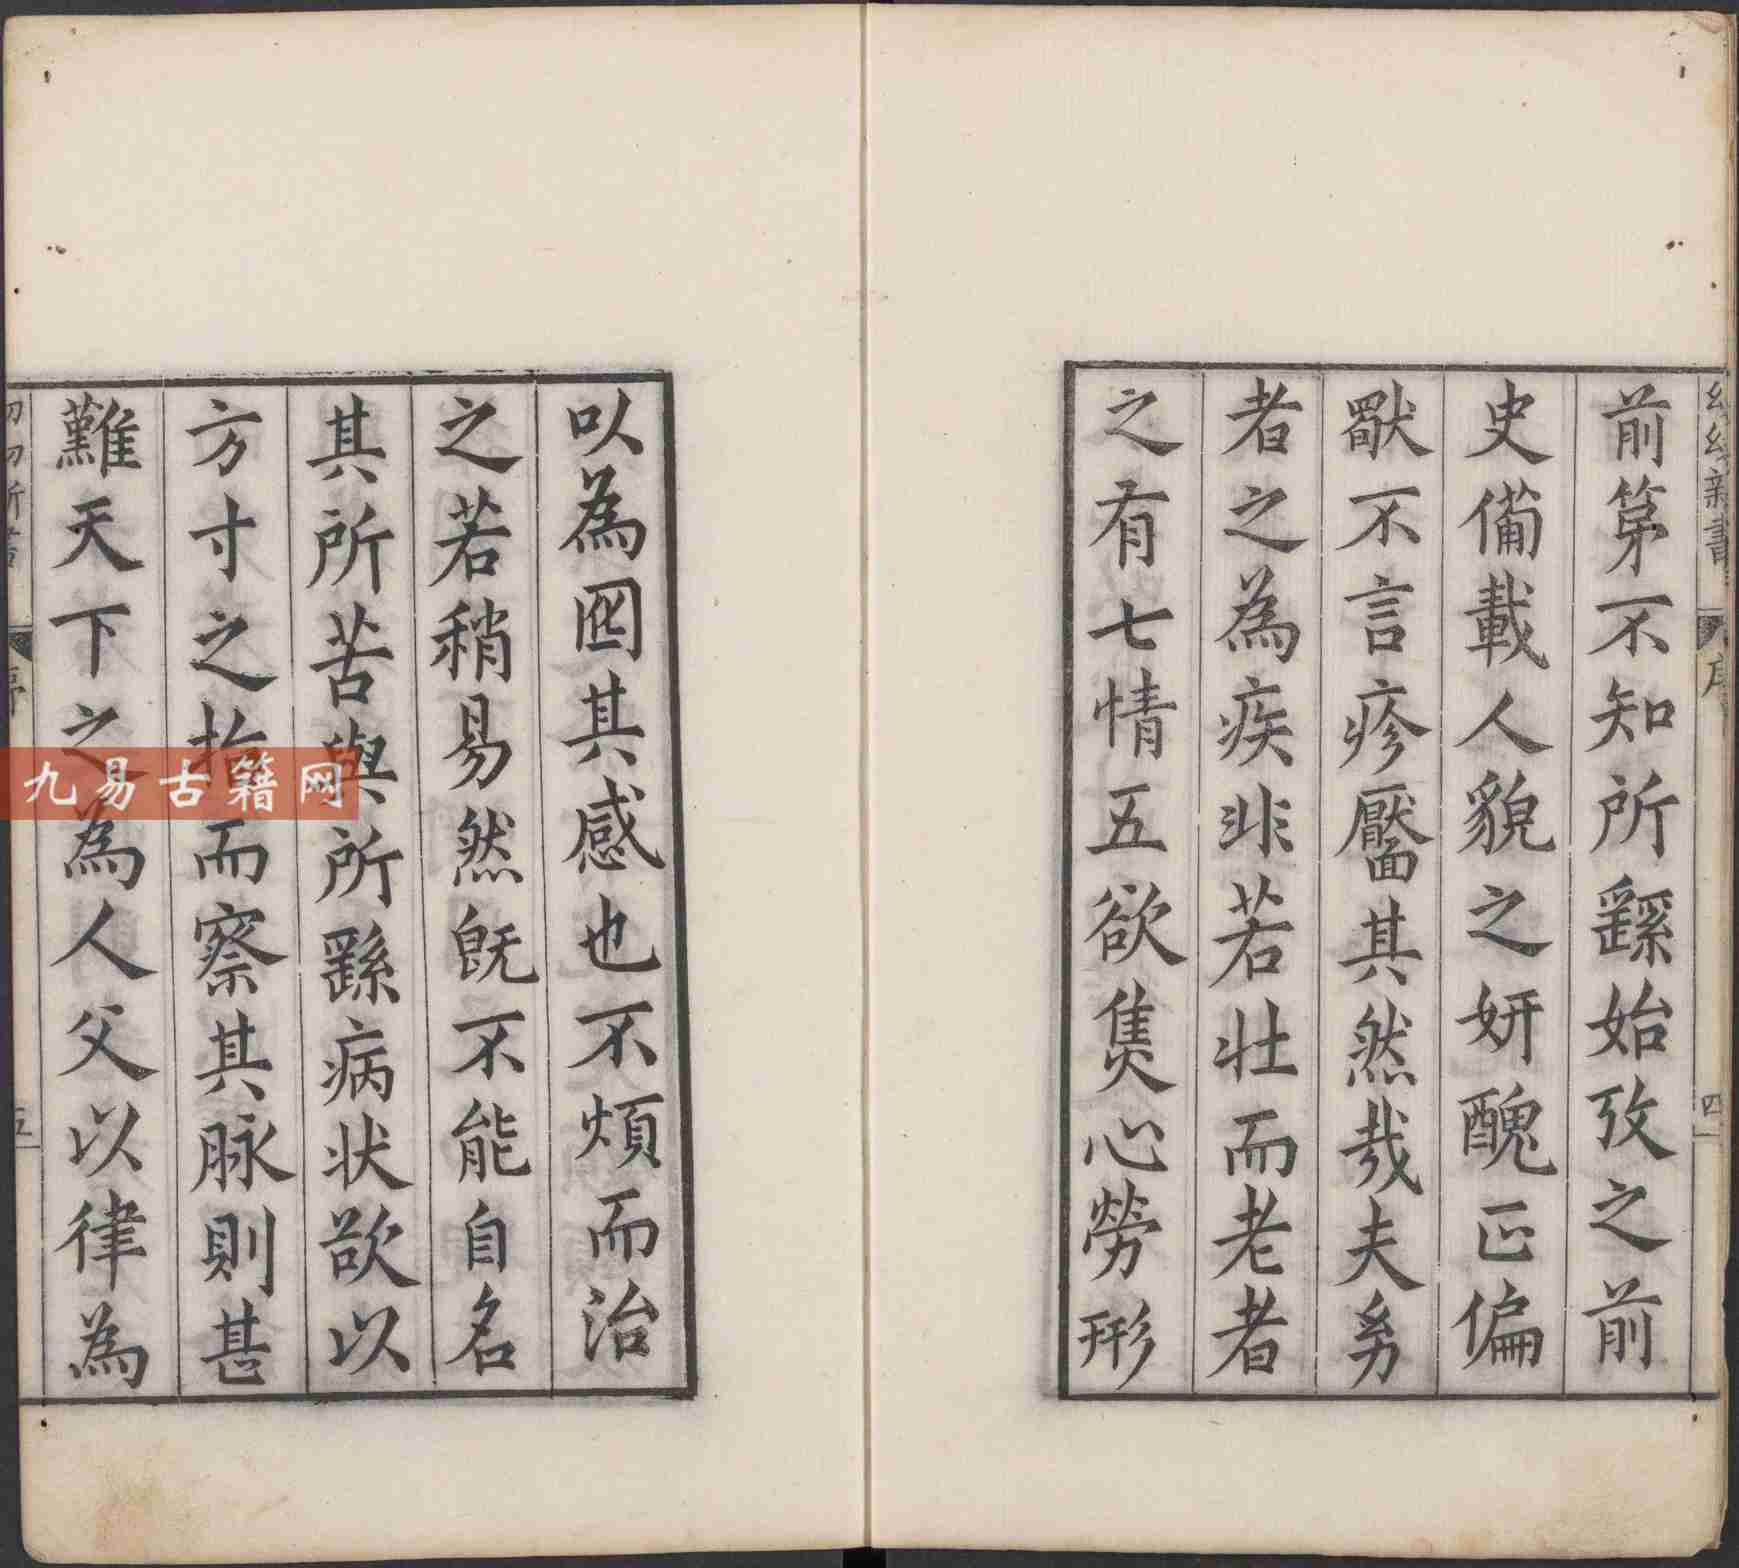 幼幼新書
序
四
前第不知所繇始攷之前
史備載人貌之妍醜正偏
獸不言疹靨其然哉夫㓜
者之為疾非若壯而老者
之有七情五欲焦心勞形
以為囮其感也不煩而治
之若稍易然既不能自名
其所苦與所繇病狀欲以
方寸之指而察其脉則甚
難天下之為人父以律為
序
五
九易古籍网